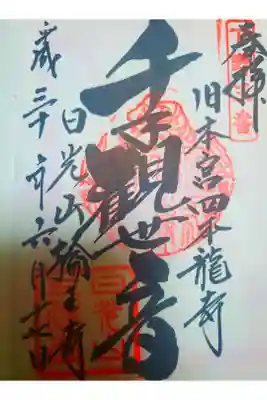 奉拝
旧本宮四本龍寺
千手觀世音
日光山輪王寺
三十年六月